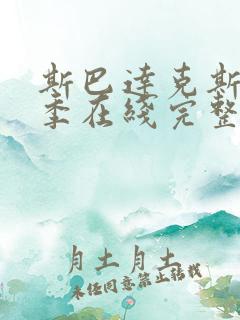 斯巴达克斯
季在线完整
月土月土
未经同意禁止转载